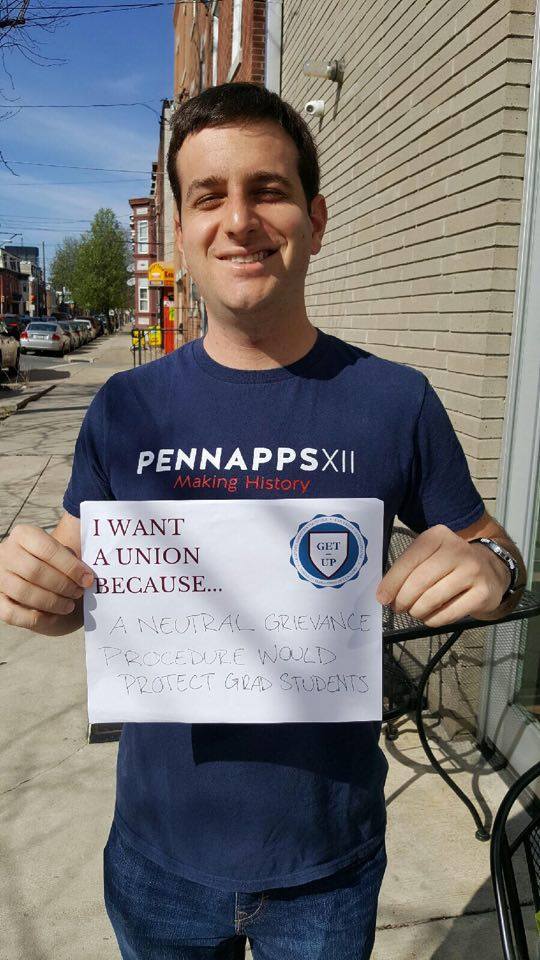 PENNAPPSXII
Making History
I WANT
A UNION
BECAUSE...
GET
–
UP
A NEUTRAL GRIEVANCE
PROCEDURE WOULD
PROTECT GRAD STUDENTS